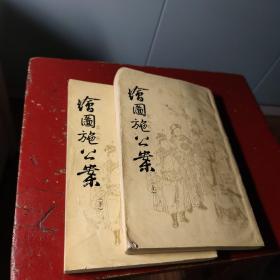 繪圖施公案
（上）
繪圖施公案
（下）